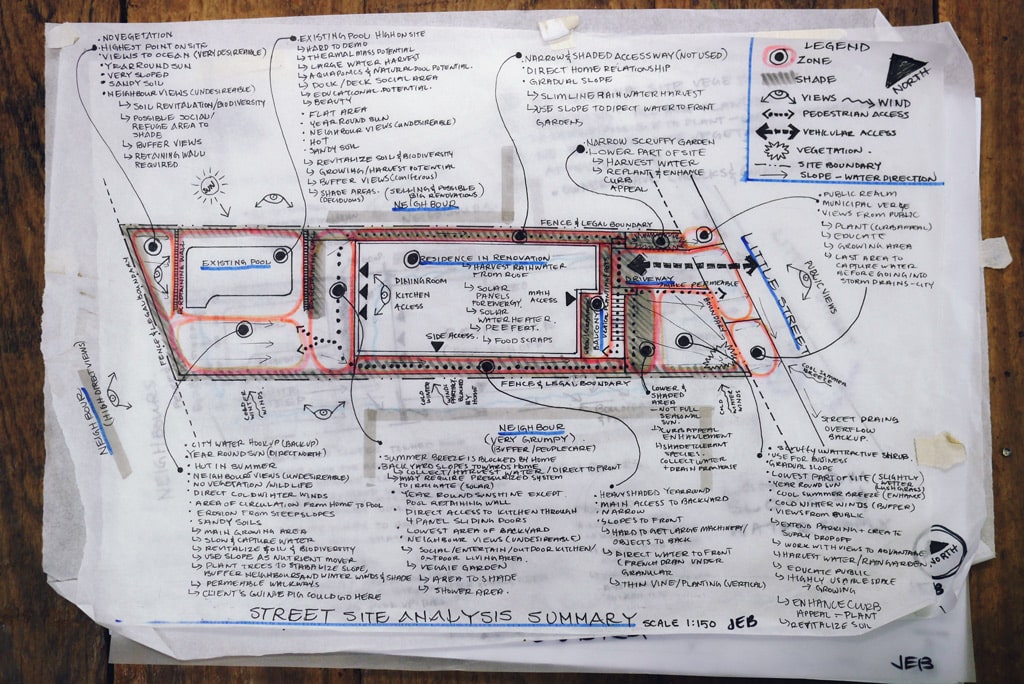 • NO VEGETATION
• HIGHEST POINT ON SITE
• VIEWS TO OCEAN (VERY DESIREABLE)
• YEAR ROUND SUN
• VERY SLOPED
• SANDY SOIL
• NEIGHBOUR VIEWS (UNDESIREABLE)
↳ SOIL REVITALATION/BIODIVERSITY
↳ POSSIBLE SOCIAL/
REFUGE AREA TO
SHADE
↳ BUFFER VIEWS
↳ RETAINING WALL
REQUIRED
• EXISTING POOL HIGH ON SITE
↳ HARD TO DEMO
↳ THERMAL MASS POTENTIAL
↳ LARGE WATER HARVEST
↳ AQUAPONICS & NATURAL POOL POTENTIAL
↳ DOCK/DECK SOCIAL AREA
↳ EDUCATIONAL POTENTIAL
↳ BEAUTY
• FLAT AREA
• YEAR ROUND SUN
• NEIGHBOUR VIEWS (UNDESIREABLE)
• HOT
• SANDY SOIL
↳ REVITALIZE SOIL & BIODIVERSITY
↳ GROWING/HARVEST POTENTIAL
↳ BUFFER VIEWS (CONIFEROUS)
↳ SHADE AREAS.
(DECIDUOUS)
(SELLING & POSSIBLE
BIG RENOVATIONS)
NEIGHBOUR
• NARROW & SHADED ACCESSWAY (NOT USED)
• DIRECT HOME RELATIONSHIP
• GRADUAL SLOPE
↳ SLIMLINE RAIN WATER HARVEST
↳ USE SLOPE TO DIRECT WATER TO FRONT
GARDENS
NARROW SCRUFFY GARDEN
• LOWER PART OF SITE
↳ HARVEST WATER
↳ REPLANT & ENHANCE
CURB
APPEAL
LEGEND
ZONE
SHADE
VIEWS
WIND
PEDESTRIAN ACCESS
VEHICULAR ACCESS
VEGETATION
SITE BOUNDARY
SLOPE - WATER DIRECTION
NORTH
• PUBLIC REALM
• MUNICIPAL VERGE
• VIEWS FROM PUBLIC
↳ PLANT (CURB APPEAL)
↳ EDUCATE
↳ GROWING AREA
↳ LAST AREA TO
CAPTURE WATER
BEFORE GOING INTO
STORM DRAINS - CITY
SUN
FENCE & LEGAL BOUNDARY
FENCE & LEGAL BOUNDARY
RETAINING WALL
EXISTING POOL
RESIDENCE IN RENOVATION
↳ HARVEST RAINWATER
FROM ROOF
↳ SOLAR
PANELS
FOR ENERGY
↳ SOLAR
WATER HEATER
↳ FOOD SCRAPS
DINING ROOM
KITCHEN
ACCESS
MAIN
ACCESS
SIDE ACCESS
BALCONY
DRIVEWAY
PERMEABLE
BOUNDARY
LITTLE STREET
PUBLIC VIEWS
COOL SUMMER
BREEZE
NEIGHBOUR
(HIGH DIRECT VIEWS)
COLD
WINTER
WINDS
COLD
WINTER
WINDS
PARTIALLY
BLOCKED
BY
HOME
FENCE & LEGAL BOUNDARY
COLD
WINTER
WINDS
LOWER &
SHADED
AREA
- NOT FULL
SEASONAL
SUN.
↳ CURB APPEAL
ENHANCEMENT
↳ SHADE TOLERANT
SPECIES
COLLECT WATER
+ DRAIN FROM HOUSE
STREET DRAINS
OVERFLOW
BACKUP.
NEIGHBOUR
(VERY GRUMPY)
(BUFFER/PEOPLE CARE)
• CITY WATER HOOKUP (BACKUP)
• YEAR ROUND SUN (DIRECT NORTH)
• HOT IN SUMMER
• NEIGHBOUR VIEWS (UNDESIREABLE)
• NO VEGETATION/WILDLIFE
• DIRECT COLD WINTER WINDS
• AREA OF CIRCULATION FROM HOME TO POOL
• EROSION FROM STEEP SLOPES
• SANDY SOILS
↳ MAIN GROWING AREA
↳ SLOW & CAPTURE WATER
↳ REVITALIZE SOIL & BIODIVERSITY
↳ USE SLOPE AS NUTRIENT MOVER
↳ PLANT TREES TO STABALIZE SLOPE,
BUFFER NEIGHBOURS AND WINTER WINDS & SHADE
↳ PERMEABLE WALKWAYS
↳ CLIENT'S GUINEA PIG COULD GO HERE
• SUMMER BREEZE IS BLOCKED BY HOME
• BACKYARD SLOPES TOWARDS HOME
↳ COLLECT/HARVEST WATER/DIRECT TO FRONT
↳ MAY REQUIRE PRESSURIZED SYSTEM
TO IRRIGATE (SOLAR)
• YEAR ROUND SUNSHINE EXCEPT
POOL RETAINING WALL
• DIRECT ACCESS TO KITCHEN THROUGH
4 PANEL SLIDING DOORS
• LOWEST AREA OF BACKYARD
• NEIGHBOUR VIEWS (UNDESIREABLE)
↳ SOCIAL/ENTERTAIN/OUTDOOR KITCHEN/
OUTDOOR LIVING AREA
↳ VEGGIE GARDEN
↳ AREA TO SHADE
↳ SHOWER AREA.
• HEAVY SHADED YEAR ROUND
• MAIN ACCESS TO BACKYARD
• NARROW
• SLOPES TO FRONT
↳ HARD TO GET LARGE MACHINERY/
OBJECTS TO BACK
↳ DIRECT WATER TO FRONT
(FRENCH DRAIN UNDER
GRANULAR
↳ THIN VINE/PLANTING (VERTICAL)
• SCRUFFY UNATTRACTIVE SHRUB
• USE FOR BUSINESS
• GRADUAL SLOPE
• LOWEST PART OF SITE (SLIGHTLY
• YEAR ROUND SUN
• COOL SUMMER BREEZE (ENHANCE)
• COLD WINTER WINDS (BUFFER)
• VIEWS FROM PUBLIC
↳ EXTEND PARKING + CREATE
SUPPLY DROP OFF
↳ WORK WITH VIEWS TO ADVANTAGE
↳ HARVEST WATER/RAIN GARDEN
↳ EDUCATE PUBLIC
↳ HIGHLY USABLE SPACE
↳ GROWING
↳ ENHANCE CURB
APPEAL - PLANT
↳ REVITALIZE SOIL
NORTH
STREET SITE ANALYSIS SUMMARY SCALE 1:150 JEB
JEB